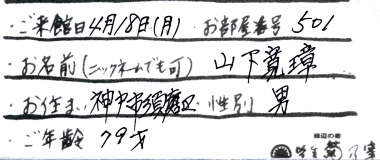 ・ご来館日 4月18日(月) ・お部屋番号 501
・お名前(ニックネームでも可) 山下寛璋
・お住まい 神戸市須磨区 ・性別 男
・ご年齢 79才
渚の荘